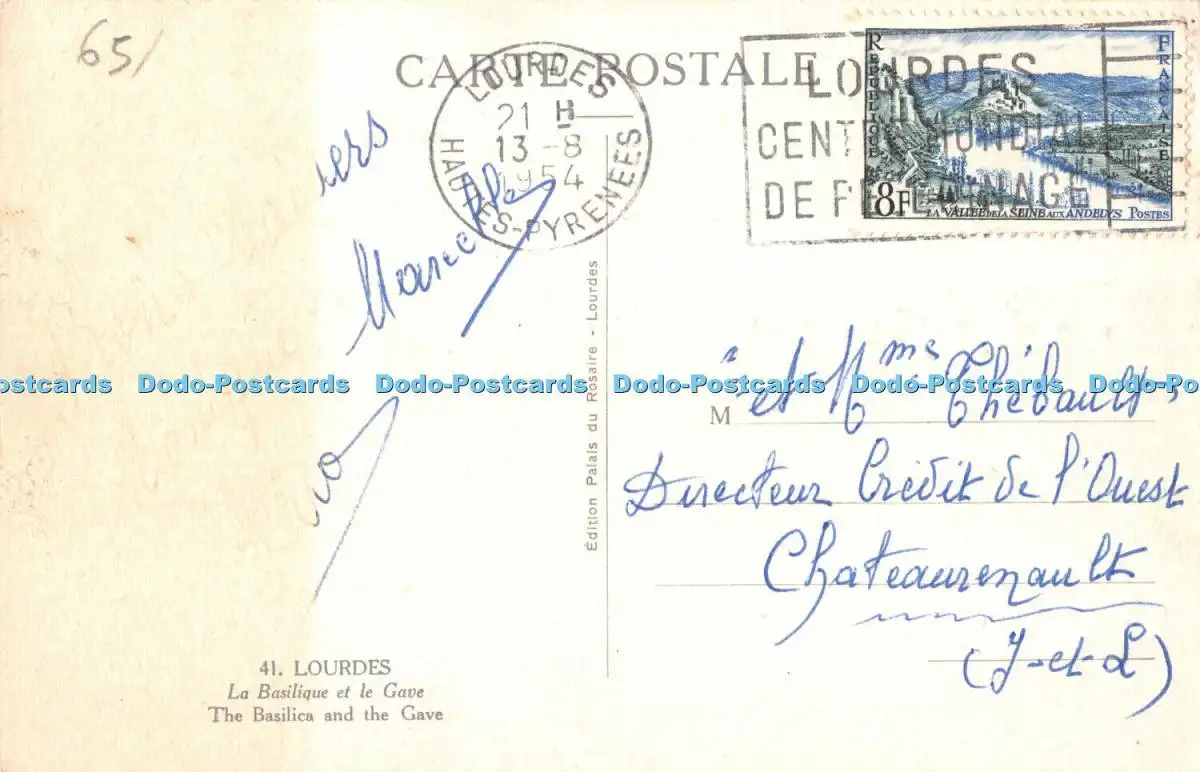 65/
CARTE POSTALE
LOURDES
21 H
13-8
1954
HAUTES-PYRENEES
LOURDES
CENTRE MONDIAL
DE PELERINAGE
REPUBLIQUE
FRANCAISE
8F
LA VALLEE DE LA SEINE AUX ANDELYS POSTES
Édition Palais du Rosaire - Lourdes
M et Mme Thébault,
Directeur Crédit de l'Ouest
Chateaurenault
(I-et-L)
41. LOURDES
La Basilique et le Gave
The Basilica and the Gave
Postcards Dodo-Postcards Dodo-Postcards Dodo-Postcards Dodo-Postcards Dodo-Post